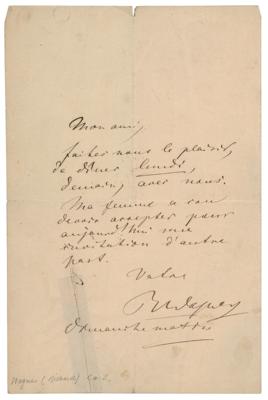 Mon ami,
faites nous le plaisir,
de dîner lundi,
demain, avec nous.
Ma femme a cru
devoir accepter pour
aujourd'hui une
invitation d'autre
part.
Votre
RWagner
dimanche matin
Wagner (Richard)